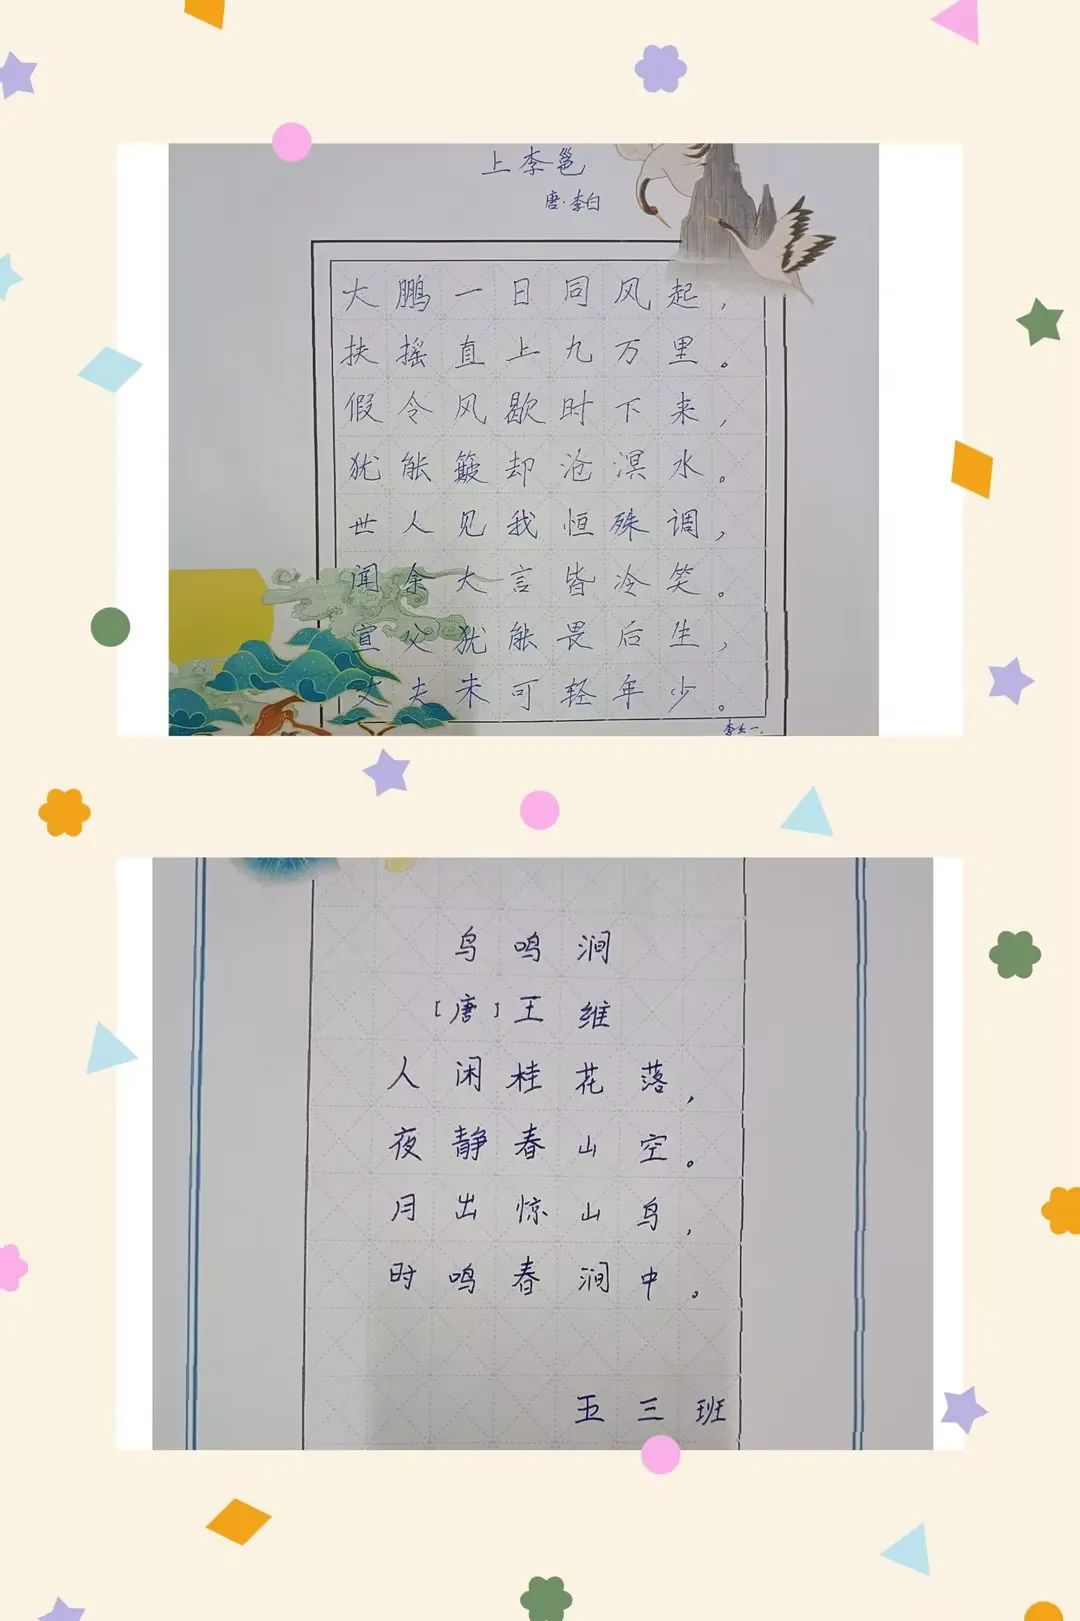 上李邕
唐·李白
大鹏一日同风起,
扶摇直上九万里。
假令风歇时下来,
犹能簸却沧溟水。
世人见我恒殊调,
闻余大言皆冷笑。
宣父犹能畏后生,
丈夫未可轻年少。
鸟鸣涧
[唐]王维
人闲桂花落,
夜静春山空。
月出惊山鸟,
时鸣春涧中。
五三班